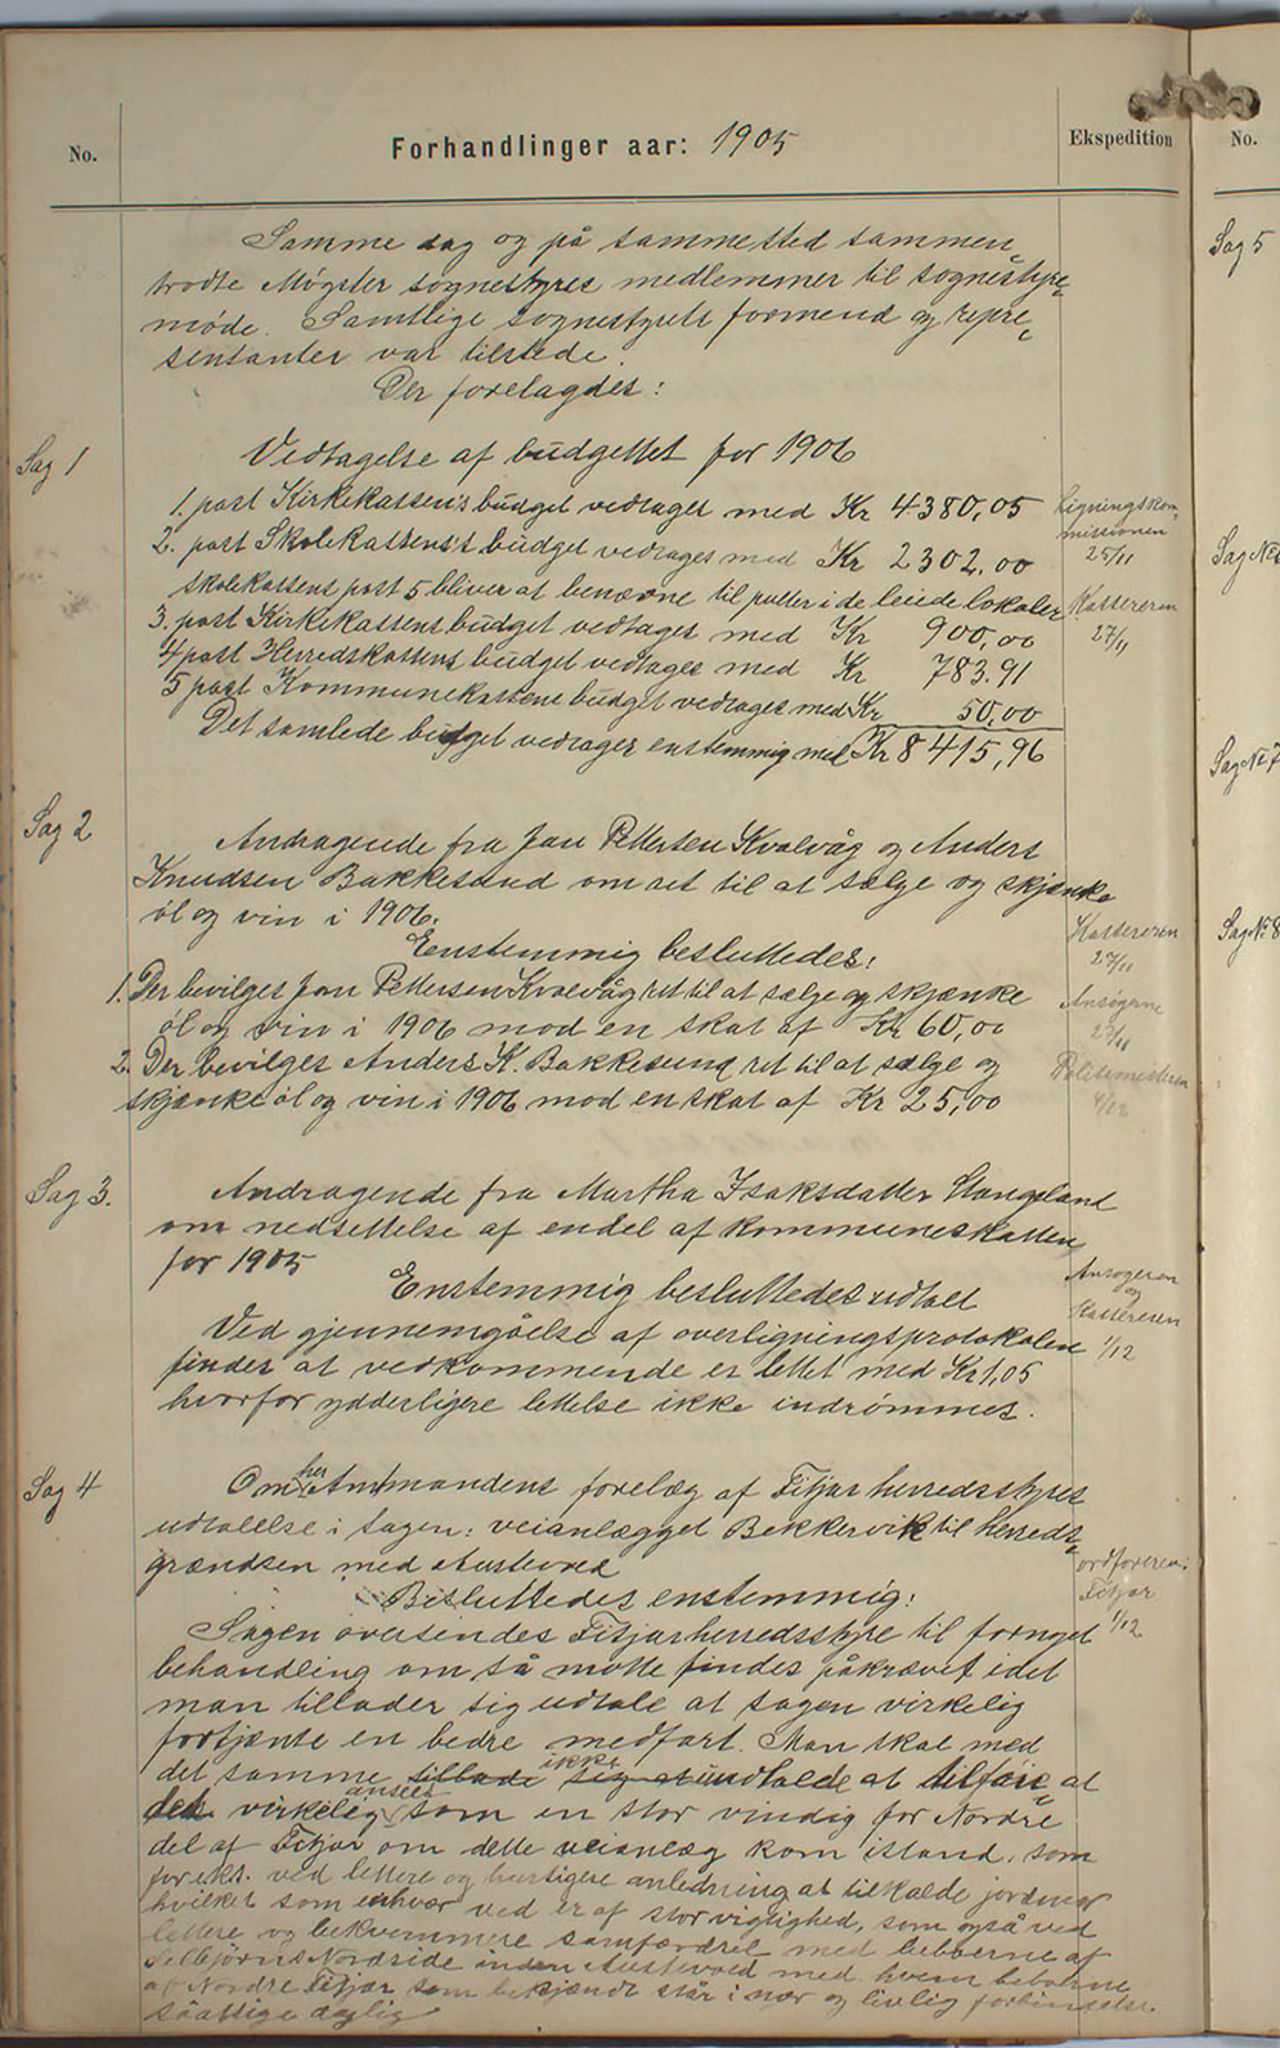 No.
Forhandlinger aar: 1905
Ekspedition
No.
Samme dag og på sammested sammen„
trådte Møgster sognestyres medlemmer til sognestyre„
møde. Samtlige sognestyrets formend og repre„
sentanter var tilstede.
Der forelagdes:
Sag 1
Vedtagelse af budgettet for 1906
1. post Kirkekassen's budget vedtaget med Kr 4380,05
Ligningskom„
missionen
25/11
2. post Skolekassens's budget vedtages med Kr 2302.00
skolekassens post 5 bliver at benævne til pulter i de leiede lokaler
Kassereren
27/11
3. post Kirkekassens budget vedtages med Kr 900,00
4 post Herredskassens budget vedtages med Kr 783.91
5 post Kommunekassens budget vedtages med Kr 50,00
Det samlede budget vedtages enstemmig med Kr 8415,96
Sag 2
Andragende fra Jan Pettersen Kvalvåg og Anders
Knudsen Bakkesund om ret til at sælge og skjænke
øl og vin i 1906.
Kassereren
27/11
Enstemmig besluttedes:
1. Der bevilges Jan Pettersen Kvalvåg ret til at sælge og skjænke
øl og vin i 1906 mod en skat af Kr 60,00
Ansøgerne
27/11
2. Der bevilges Anders K. Bakkesund ret til at sælge og
skjænke øl og vin i 1906 mod en skat af Kr 25,00
Politimesteren
4/12
Sag 3.
Andragende fra Martha Isaksdatter Stangeland
om nedsettelse af endel af kommuneskatten
for 1905
Enstemmig besluttedes udtalt
Ansøgeren
og
Kassereren
1/12
Ved gjennemgåelse af overligningsprotokolen
findes at vedkommende er lettet med Kr 1,05
hvorfor ydderligere lettelse ikke indrømmes.
Sag 4
Om her Amtmandens forelæg af Fitjar herredsstyres
udtalelse i sagen: veianlægget Bekkervik til herreds„
grændsen med Austevold
Besluttedes enstemmig:
ordføreren i
Fitjar
1/12
Sagen oversendes Fitjar herredsstyre til fornyet
behandling om så måtte findes påkrævet idet
man tillader sig udtale at sagen virkelig
fortjænte en bedre medfart. Man skal med
det samme tillade ikke sig at undlade at tilføie at
det virkelig ansees som en stor vinding for Nordre
del af Fitjar om dette veianlæg kom istand, som
for eks. ved lettere og hurtigere anledning at tilkalde jordmor
hvilket som enhver ved er af stor vigtighed, som også ved
lettere og bekvemmere samfærdsel med beboerne af
Selbjørns Nordside inden Austevold med hvem beboerne
af Nordre Fitjar som bekjændt står i nær og livlig forbindelse
såatsige daglig
Sag 5
Sag No
Sag No 7
Sag No 8